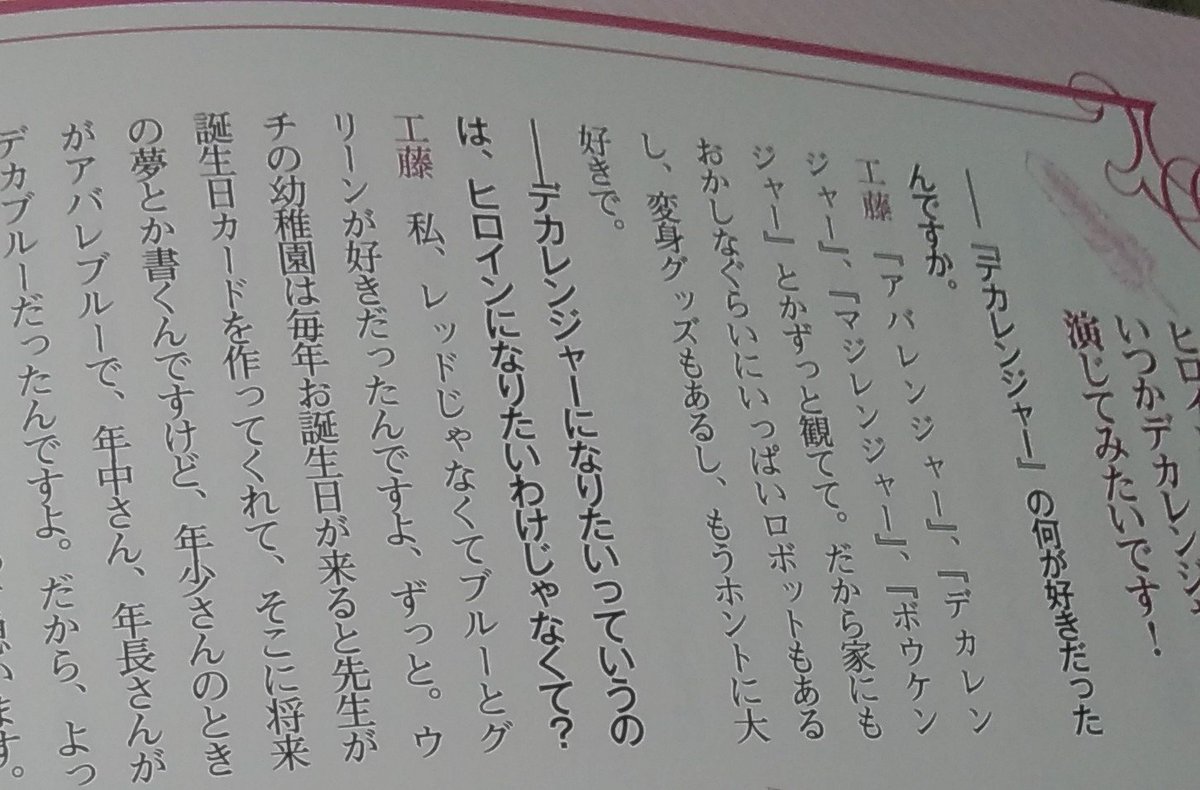 ヒロイ
いつかデカレンジャ
演じてみたいです！
――『デカレンジャー』の何が好きだった
んですか。
工藤　『アバレンジャー』、『デカレン
ジャー』、『マジレンジャー』、『ボウケン
ジャー』とかずっと観てて。だから家にも
おかしなぐらいにいっぱいロボットもある
し、変身グッズもあるし、もうホントに大
好きで。
――デカレンジャーになりたいっていうの
は、ヒロインになりたいわけじゃなくて？
工藤　私、レッドじゃなくてブルーとグ
リーンが好きだったんですよ、ずっと。ウ
チの幼稚園は毎年お誕生日が来ると先生が
誕生日カードを作ってくれて、そこに将来
の夢とか書くんですけど、年少さんのとき
がアバレブルーで、年中さん、年長さんが
デカブルーだったんですよ。だから、よっ
います。